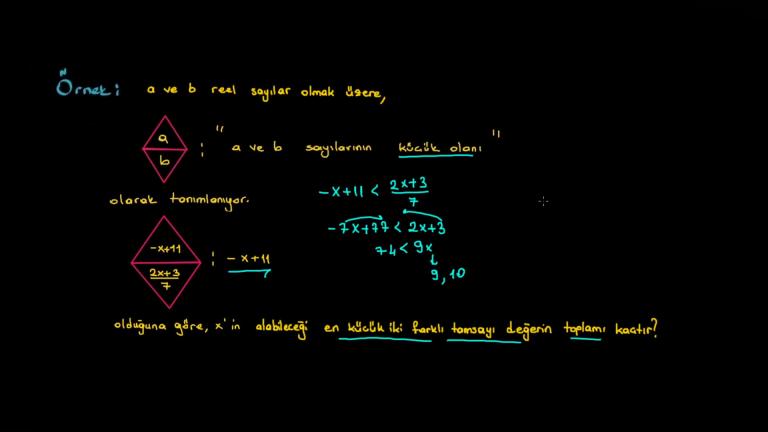 Örnek: a ve b reel sayılar olmak üzere,
a
b
: " a ve b sayılarının küçük olanı "
olarak tanımlanıyor.
-x+11 < 2x+3/7
-7x+77 < 2x+3
74 < 9x
9, 10
-x+11
2x+3/7
: -x+11
olduğuna göre, x'in alabileceği en küçük iki farklı tamsayı değerin toplamı kaçtır?